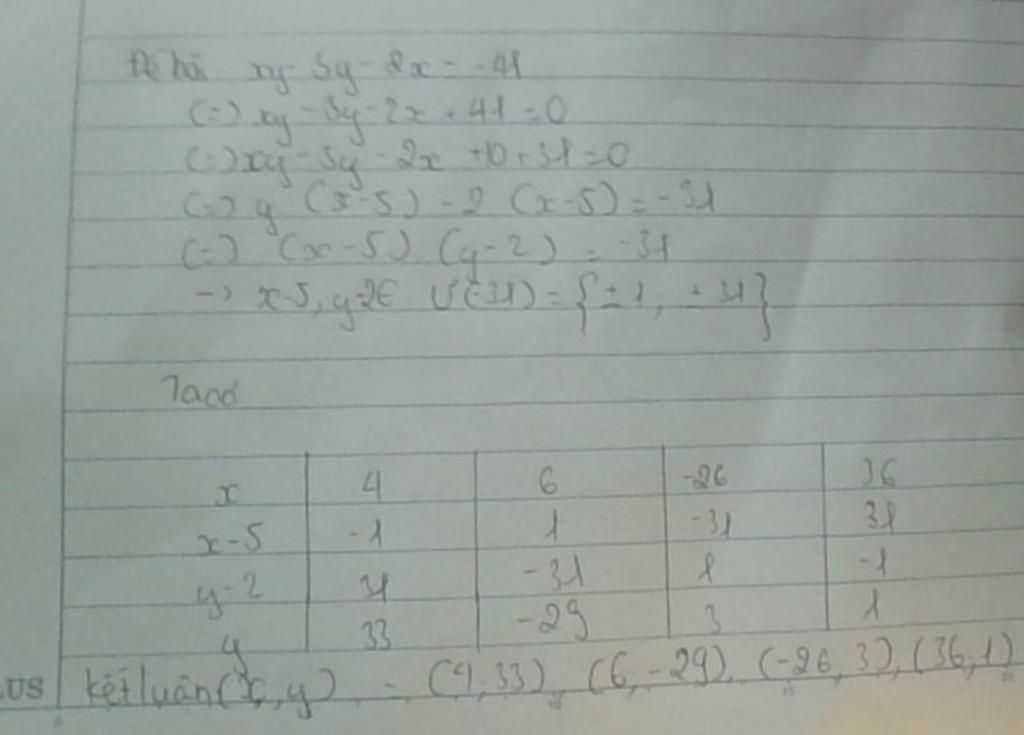 Đề bài xy-5y-2x = -41
(=) xy-5y-2x+41=0
(=) xy-5y-2x+10+31=0
(=) y (x-5) - 2 (x-5) = -31
(=) (x-5) (y-2) = -31
-> x-5, y-2 ∈ Ư(31) = {±1, ±31}
Ta có
x 4 6 -26 36
x-5 -1 1 -31 31
y-2 31 -31 1 -1
y 33 -29 3 1
kết luận (x,y) = (4,33), (6,-29), (-26,3), (36,1)